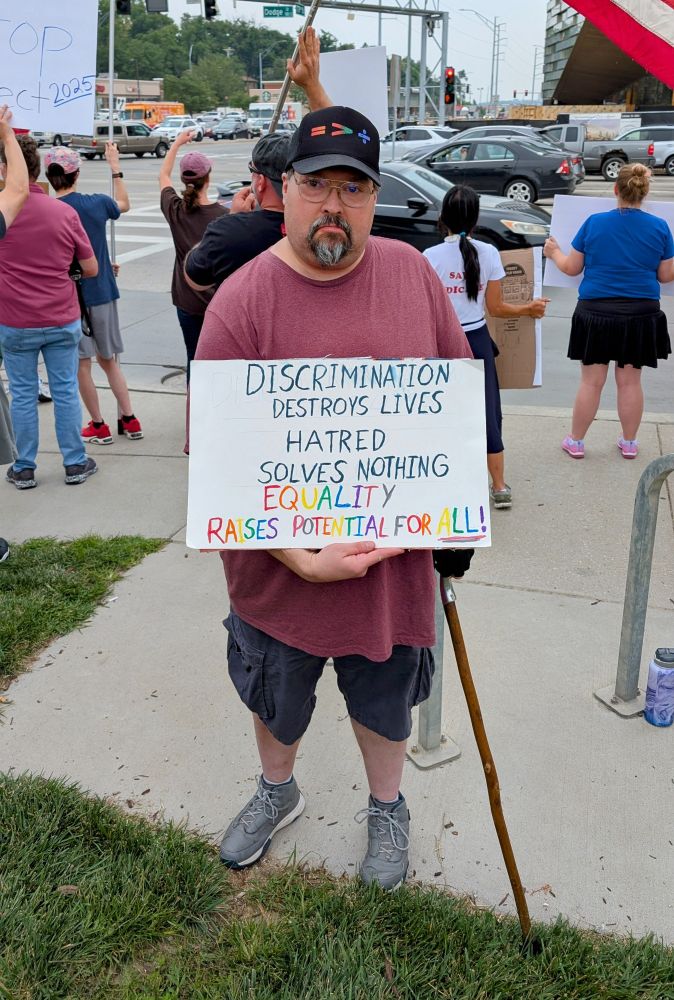 TOP
ect 2025
Dodge
= > ÷
DISCRIMINATION
DESTROYS LIVES
HATRED
SOLVES NOTHING
EQUALITY
RAISES POTENTIAL FOR ALL!